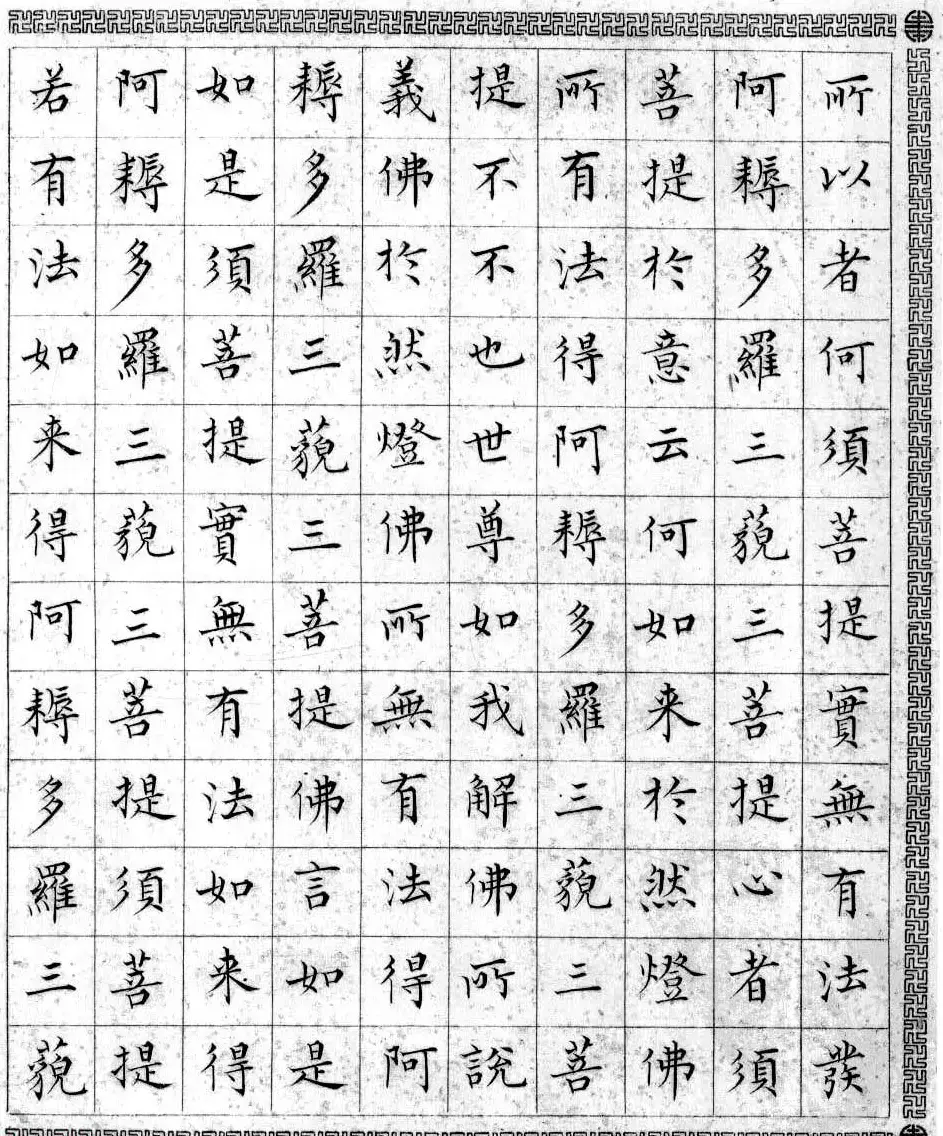 所以者何須菩提實無有法發
阿耨多羅三藐三菩提心者須
菩提於意云何如来於然燈佛
所有法得阿耨多羅三藐三菩
提不不也世尊如我解佛所說
義佛於然燈佛所無有法得阿
耨多羅三藐三菩提佛言如是
如是須菩提實無有法如来得
阿耨多羅三藐三菩提須菩提
若有法如来得阿耨多羅三藐